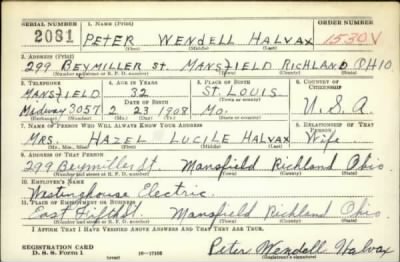 SERIAL NUMBER 1. NAME (Print) ORDER NUMBER
2031 PETER WENDELL HALVAX 1530V
(First) (Middle) (Last)
2. ADDRESS (Print)
299 BEYMILLER St. MANSFIELD RICHLAND OHIO
(Number and street or R. F. D. number) (Town) (County) (State)
3. TELEPHONE 4. AGE IN YEARS 5. PLACE OF BIRTH 6. COUNTRY OF CITIZENSHIP
MANSFIELD 32 ST. LOUIS
DATE OF BIRTH (Town or county) U. S. A.
Midway 3057 2 23 1908 Mo.
(Exchange) (Number) (Mo.) (Day) (Yr.) (State or country)
7. NAME OF PERSON WHO WILL ALWAYS KNOW YOUR ADDRESS 8. RELATIONSHIP OF THAT PERSON
MRS. HAZEL LUCILE HALVAX Wife
(Mr., Mrs., Miss) (First) (Middle) (Last)
9. ADDRESS OF THAT PERSON
299 Beymiller St. Mansfield Richland Ohio
(Number and street or R. F. D. number) (Town) (County) (State)
10. EMPLOYER'S NAME
Westinghouse Electric
11. PLACE OF EMPLOYMENT OR BUSINESS
East Fifth St. Mansfield Richland Ohio.
(Number and street or R. F. D. number) (Town) (County) (State)
I AFFIRM THAT I HAVE VERIFIED ABOVE ANSWERS AND THAT THEY ARE TRUE.
REGISTRATION CARD
D. S. S. Form 1 (over) Peter Wendell Halvax
(Registrant's signature)